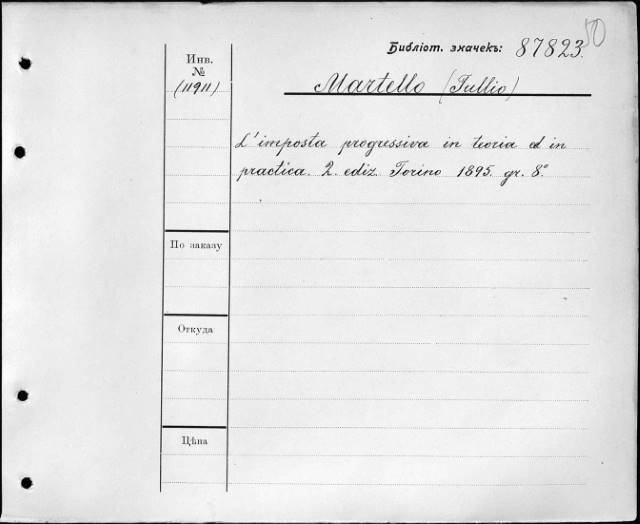 50
Библіот. значекъ: 87823.
Инв.
№
(11911)
Martello (Tullio)
L'imposta progressiva in teoria ed in
practica. 2. ediz. Torino 1895. gr. 8°
По заказу
Откуда
Цѣна